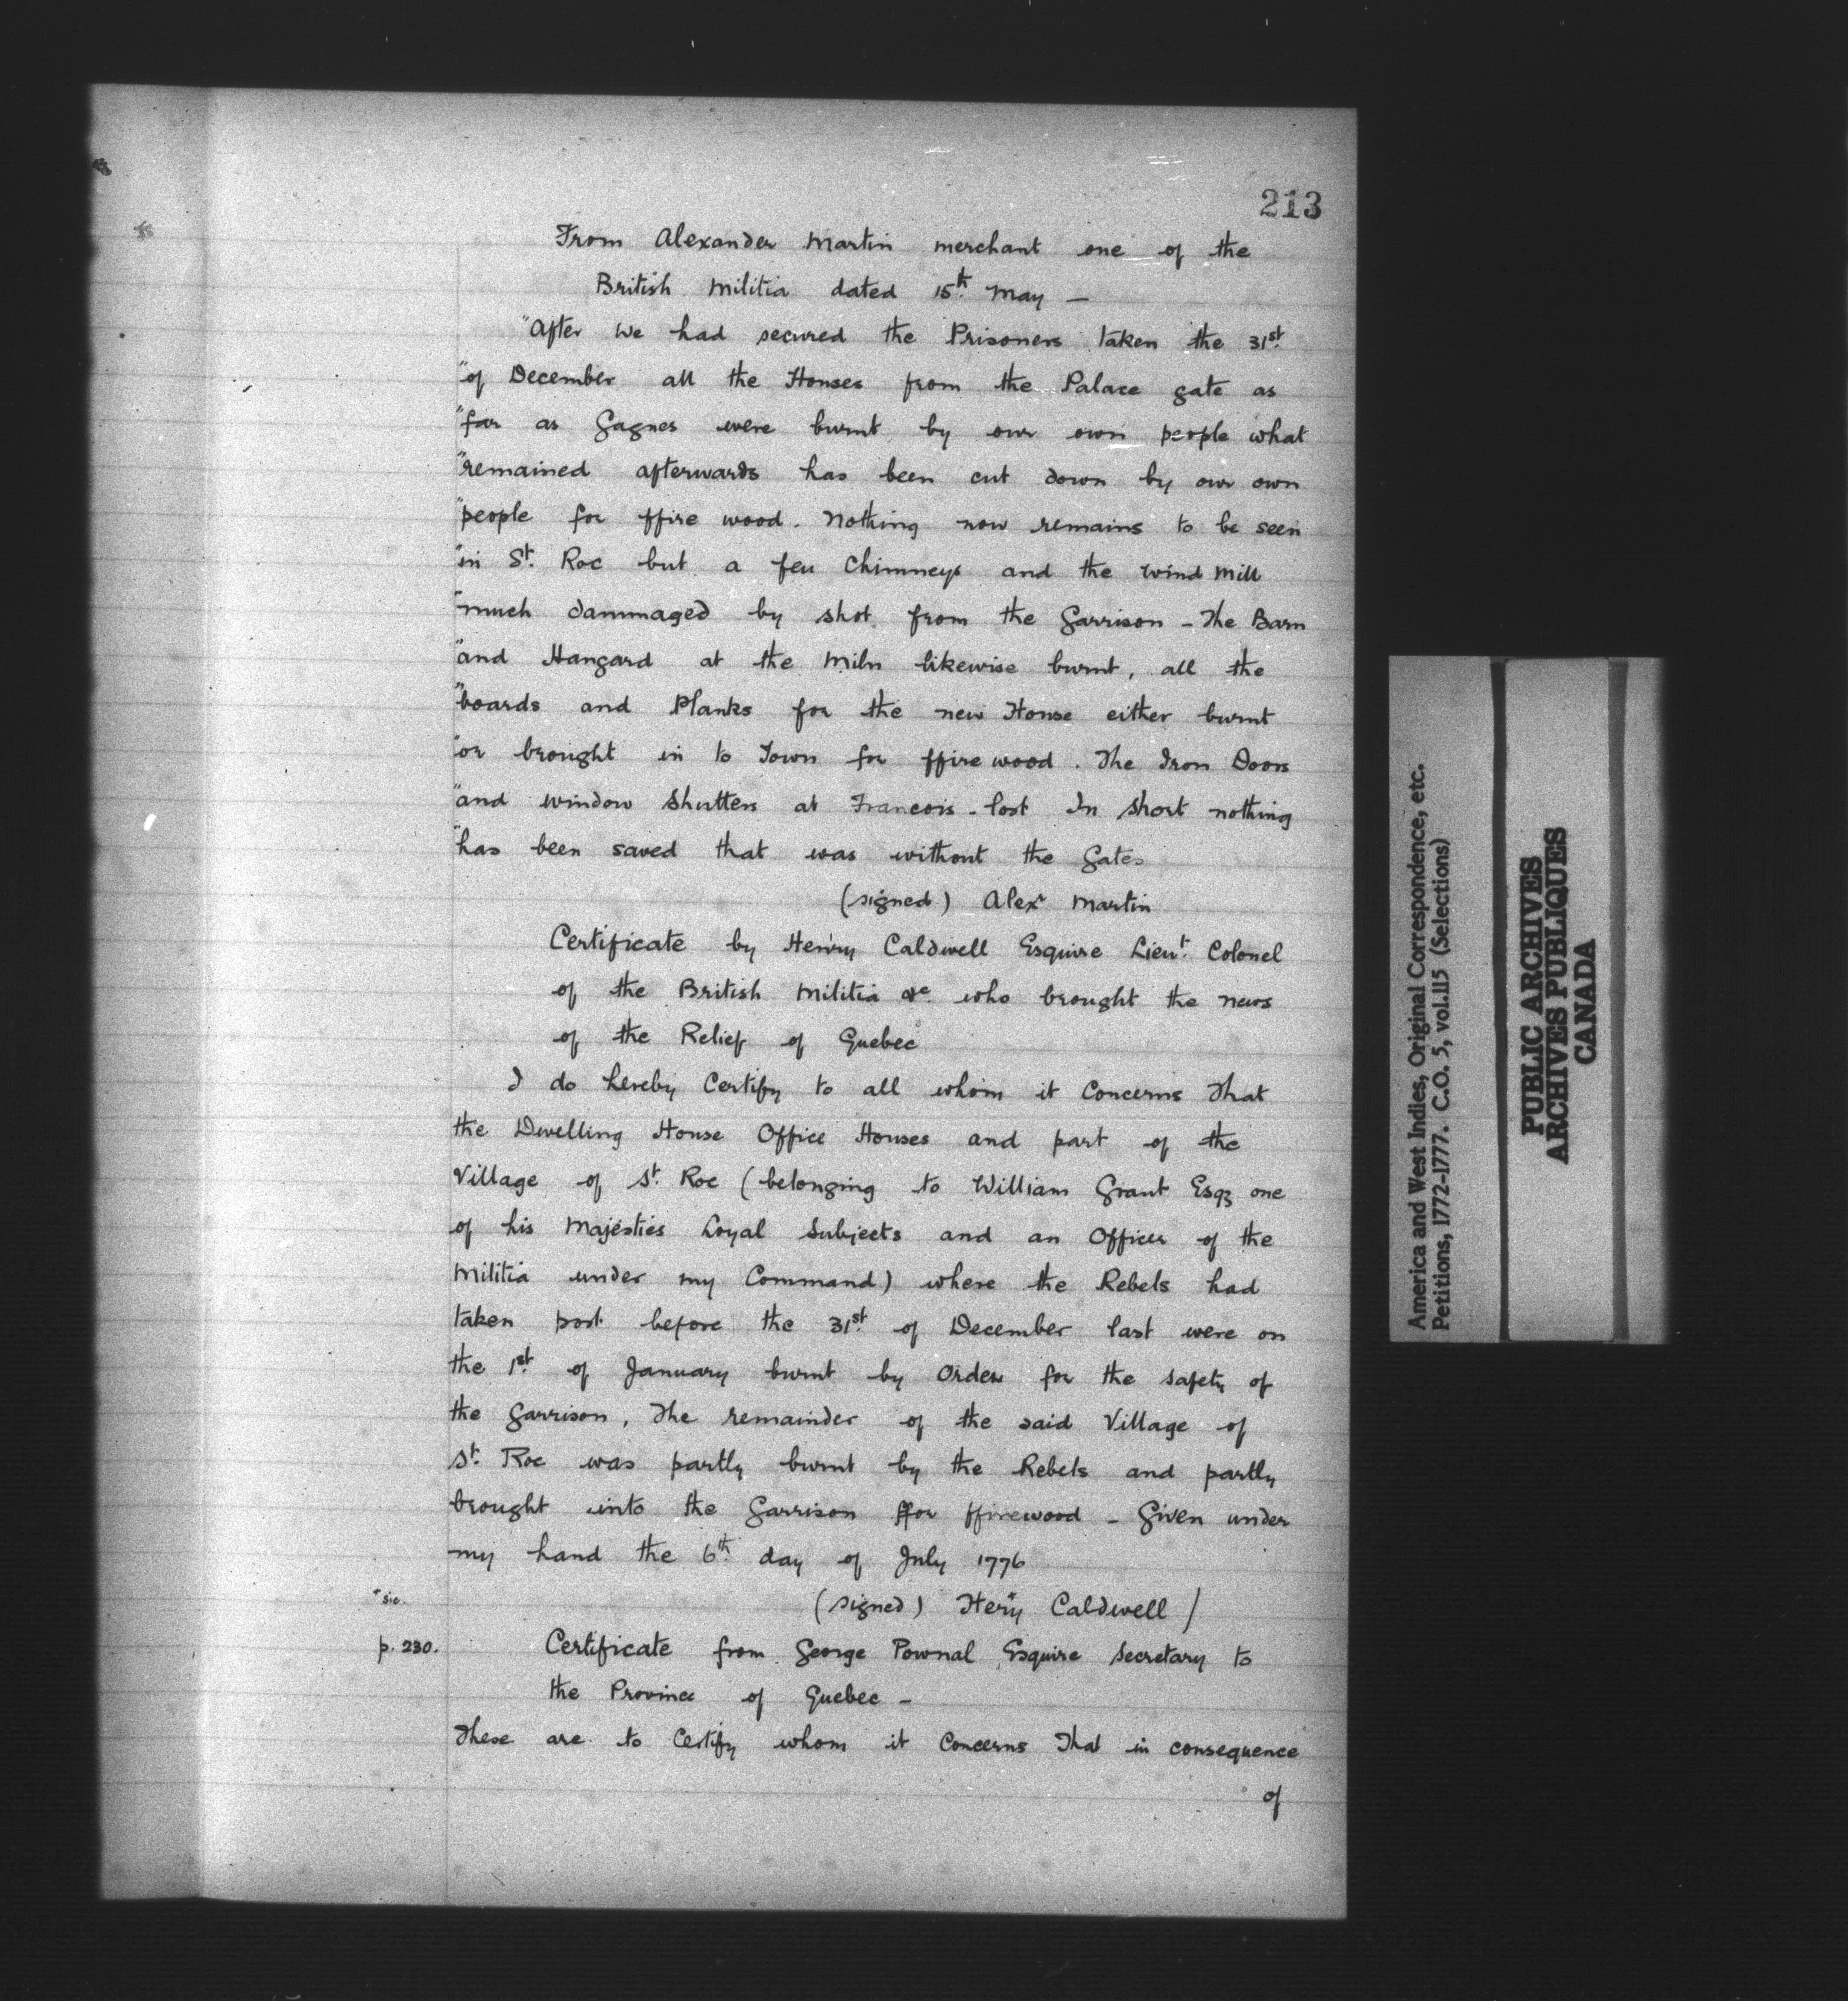 213
From Alexander Martin merchant one of the
British Militia dated 15th. May —
"After we had secured the Prisoners taken the 31st.
"of December all the Houses from the Palace gate as
"far as Gagnes were burnt by our own people what
"remained afterwards has been cut down by our own
"people for ffire wood. Nothing now remains to be seen
"in St. Roc but a few Chimneys and the Wind Mill
"much dammaged by shot from the Garrison – The Barn
"and Hangard at the Miln likewise burnt, all the
"boards and Planks for the new House either burnt
"or brought in to Town for ffire wood. The Iron Doors
"and window Shutters at Francois – lost In Short nothing
"has been saved that was without the Gates
(signed) Alexr Martin
Certificate by Henry Caldwell Esquire Lieut. Colonel
of the British Militia &c. who brought the news
of the Relief of Quebec
I do hereby Certify to all whom it Concerns That
the Dwelling House Office Houses and part of the
Village of St. Roc (belonging to William Grant Esqz one
of his Majesties Loyal Subjects and an Officer of the
Militia under my Command) where the Rebels had
taken post before the 31st. of December last were on
the 1st. of January burnt by Order for the Safety of
the Garrison, The remainder of the said Village of
St. Roc was partly burnt by the Rebels and partly
brought into the Garrison ffor ffirewood – Given under
my hand the 6th. day of July 1776
*sic.
(signed) Hery* Caldwell /
p. 230.
Certificate from George Pownal Esquire Secretary to
the Province of Quebec –
These are to Certify whom it Concerns That in consequence
of
America and West Indies, Original Correspondence, etc.
Petitions, 1772-1777. C.O. 5, vol.115 (Selections)
PUBLIC ARCHIVES
ARCHIVES PUBLIQUES
CANADA